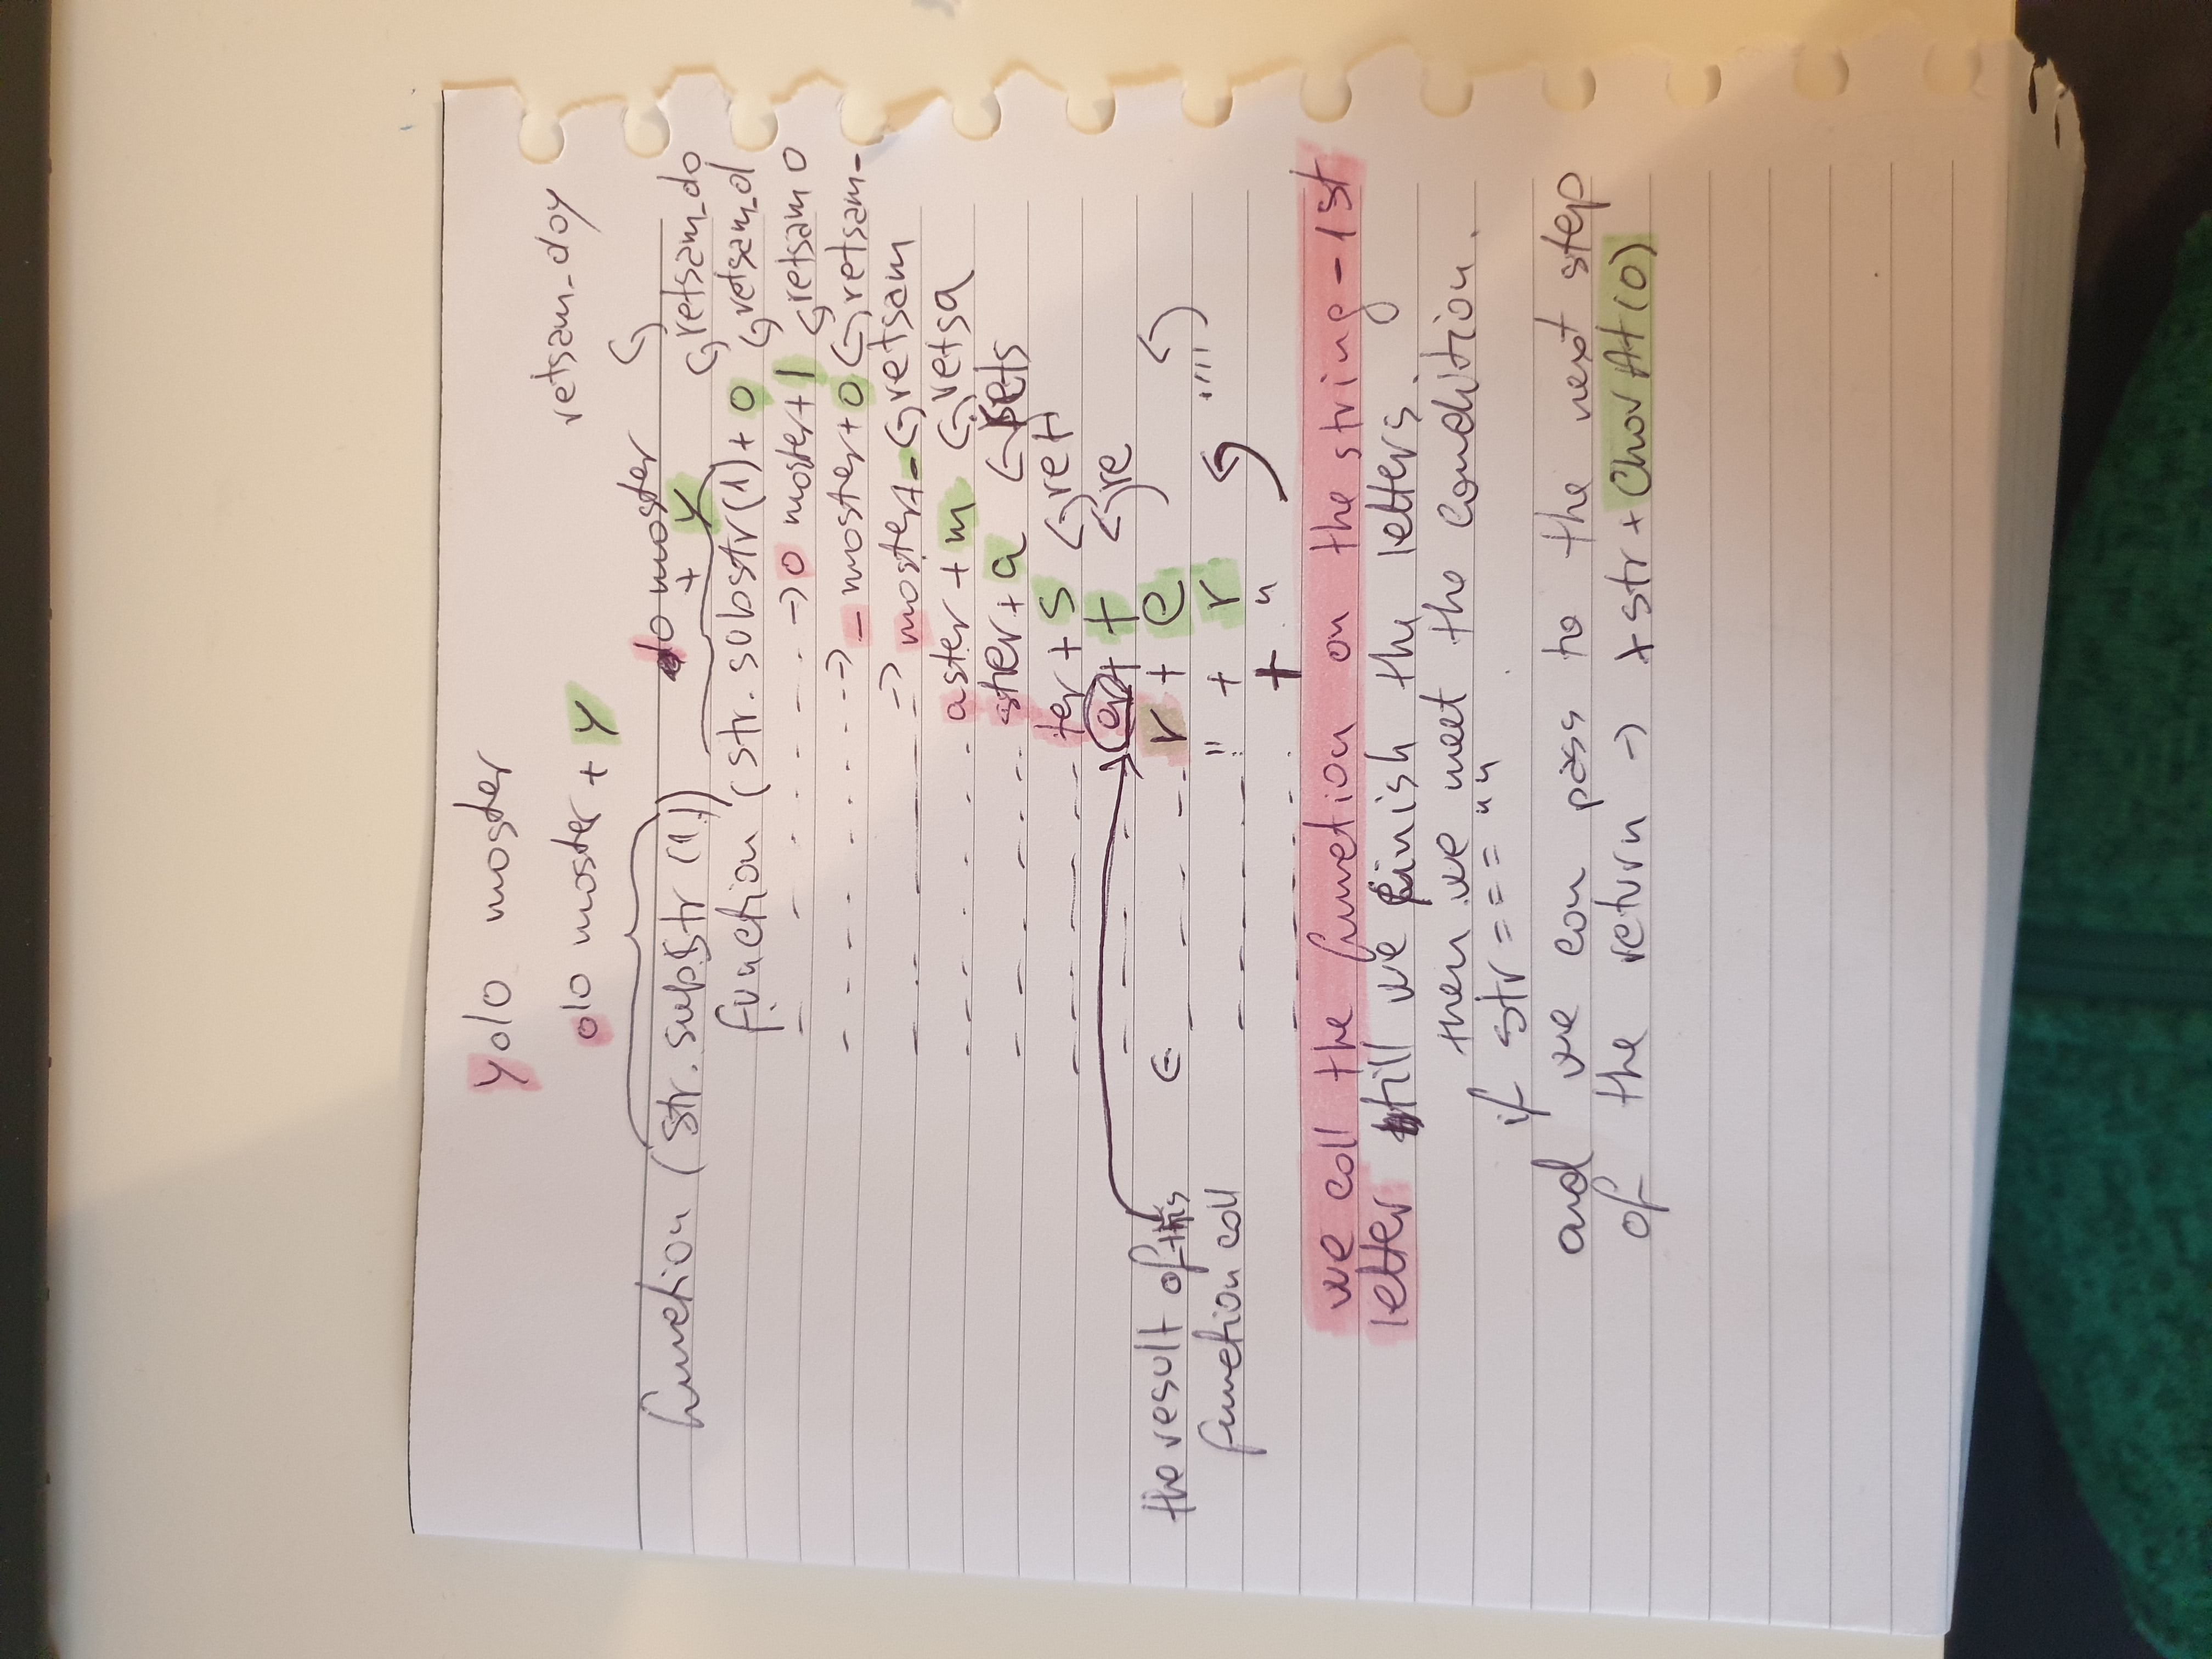 yolo master
olo master + y
retsam_oloy
lo master
+ y
function (str.substr(1))
retsam_olo
function (str.substr(1) + o
retsam_ol
-> o master + l
retsam o
-> _ master + o
retsam_
-> master + _
retsam
aster + m
retsa
ster + a
rets
ter + s
ret
er + t
re
the result of this
r + e
function call
" + r
....
+ "
we call the function on the string - 1st
letter till we finish the letters.
then we meet the condition.
if str === ""
and we can pass to the next step
of the return -> + str + CharAt(0)